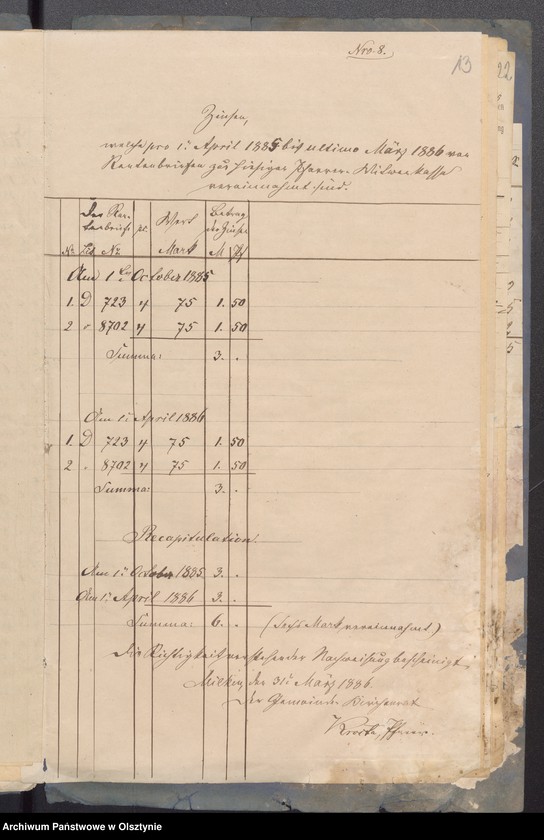 Nro. 8.
13
22
Zinsen,
welche pro 1. April 1885 bis ultimo März 1886 von
Rentenbriefen zur hiesigen Pfarrer-Witwenkasse
vereinnahmt sind.
Der Ren- pr. Wert Betrag
tenbriefe der Zinsen
No Lit. No Mark M Pf
Am 1ten October 1885
1. D 723 4 75 1. 50
2 " 8702 4 75 1. 50
Summa: 3. .
Am 1. April 1886
1. D 723 4 75 1. 50
2 " 8702 4 75 1. 50
Summa: 3. .
Recapitulation.
Am 1. October 1885 3. .
Am 1. April 1886 3. .
Summa: 6. . (Sechs Mark vereinnahmt)
Die Richtigkeit vorstehender Nachweisung bescheinigt
Milken, den 31. März 1886.
Der Gemeinde Kirchenrat
Pfarrer.
Archiwum Państwowe w Olsztynie